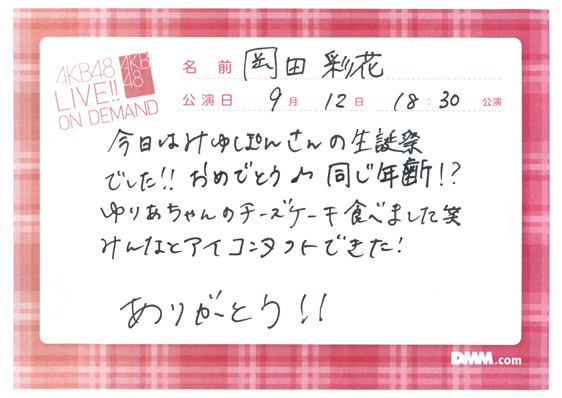 AKB48
LIVE!!
ON DEMAND
AKB
48
名 前 岡田 彩花
公演日 9月 12日 18:30 公演
今日はみゆぽんさんの生誕祭
でした!! おめでとう♫ 同じ年齢!?
ゆりあちゃんのチーズケーキ食べました笑
みんなとアイコンタクトできた!
ありがとう!!
DMM.com